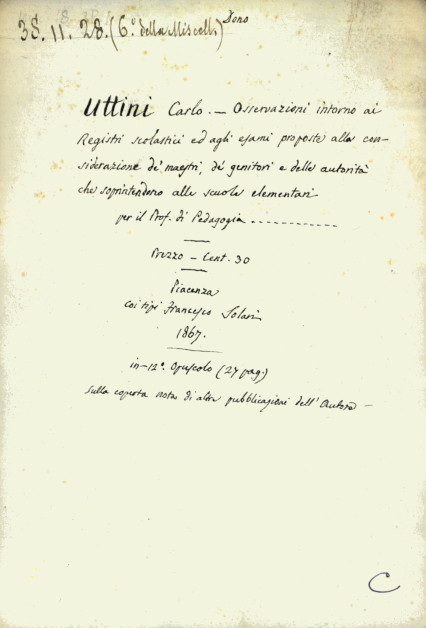 38. 11. 28. (6.º della Miscell.) Dono
Uttini Carlo. — Osservazioni intorno ai
Registri scolastici ed agli esami proposte alla con-
siderazione de' maestri, de' genitori e delle autorità
che soprintendono alle scuole elementari
per il Prof. di Pedagogia - - - - - - - - - - - -
Prezzo — Cent. 30
Piacenza
coi tipi Francesco Solari
1867.
in-12.º Opuscolo (27 pag.)
sulla coperta nota di altre pubblicazioni dell' Autore —
C